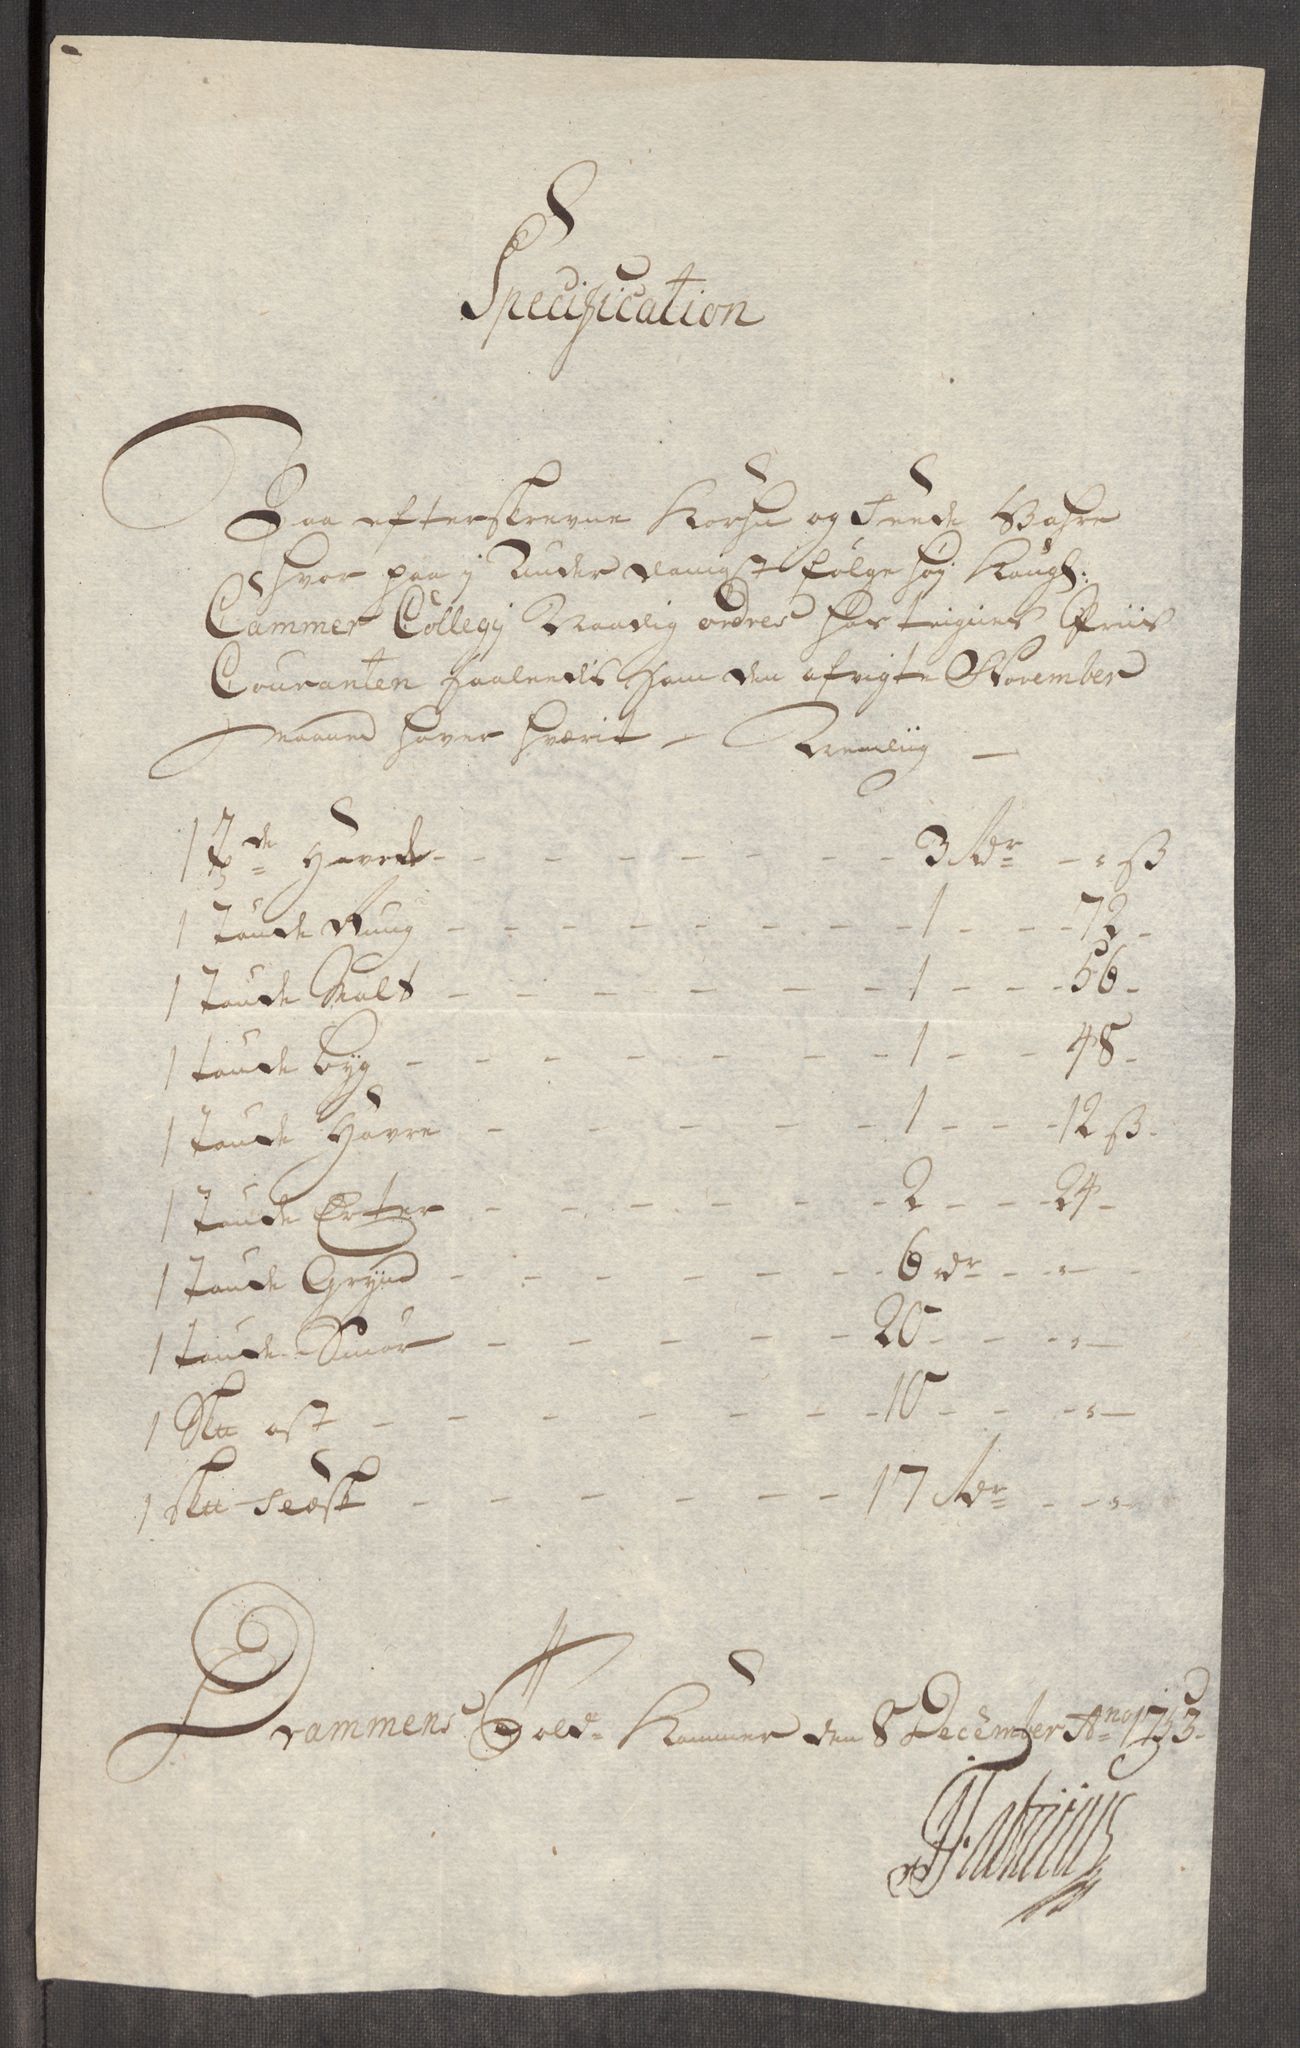 Specification
Paa efterskrevne Korhn og Feede Wahre
hvor paa j Underdanigst følge høy Kongl:
Cammer Collegij Naadig ordres hos teignes Priis
Couranten saaleedis som den afvigte November
Maaned haver hværit - Nemlig -
1 Tde Hvede - - - 3 Rdr - " ß
1 Tønde Rug - - - 1 - - 72 -
1 Tønde Malt - - - 1 - - 56 -
1 tønde byg - - - 1 - - 48 -
1 Tønde Havre - - - 1 - - 12 ß -
1 Tønde Erter - - - 2 - - 24 -
1 Tønde Gryn - - - 6 dr - " -
1 tønde Smør - - - 20 - - " -
1 Sk ost - - - 10 - - " -
1 Sk flesk - - - 17 Rdr - - " -
Drammens Told-Kammer den 8 December Ano 1733.